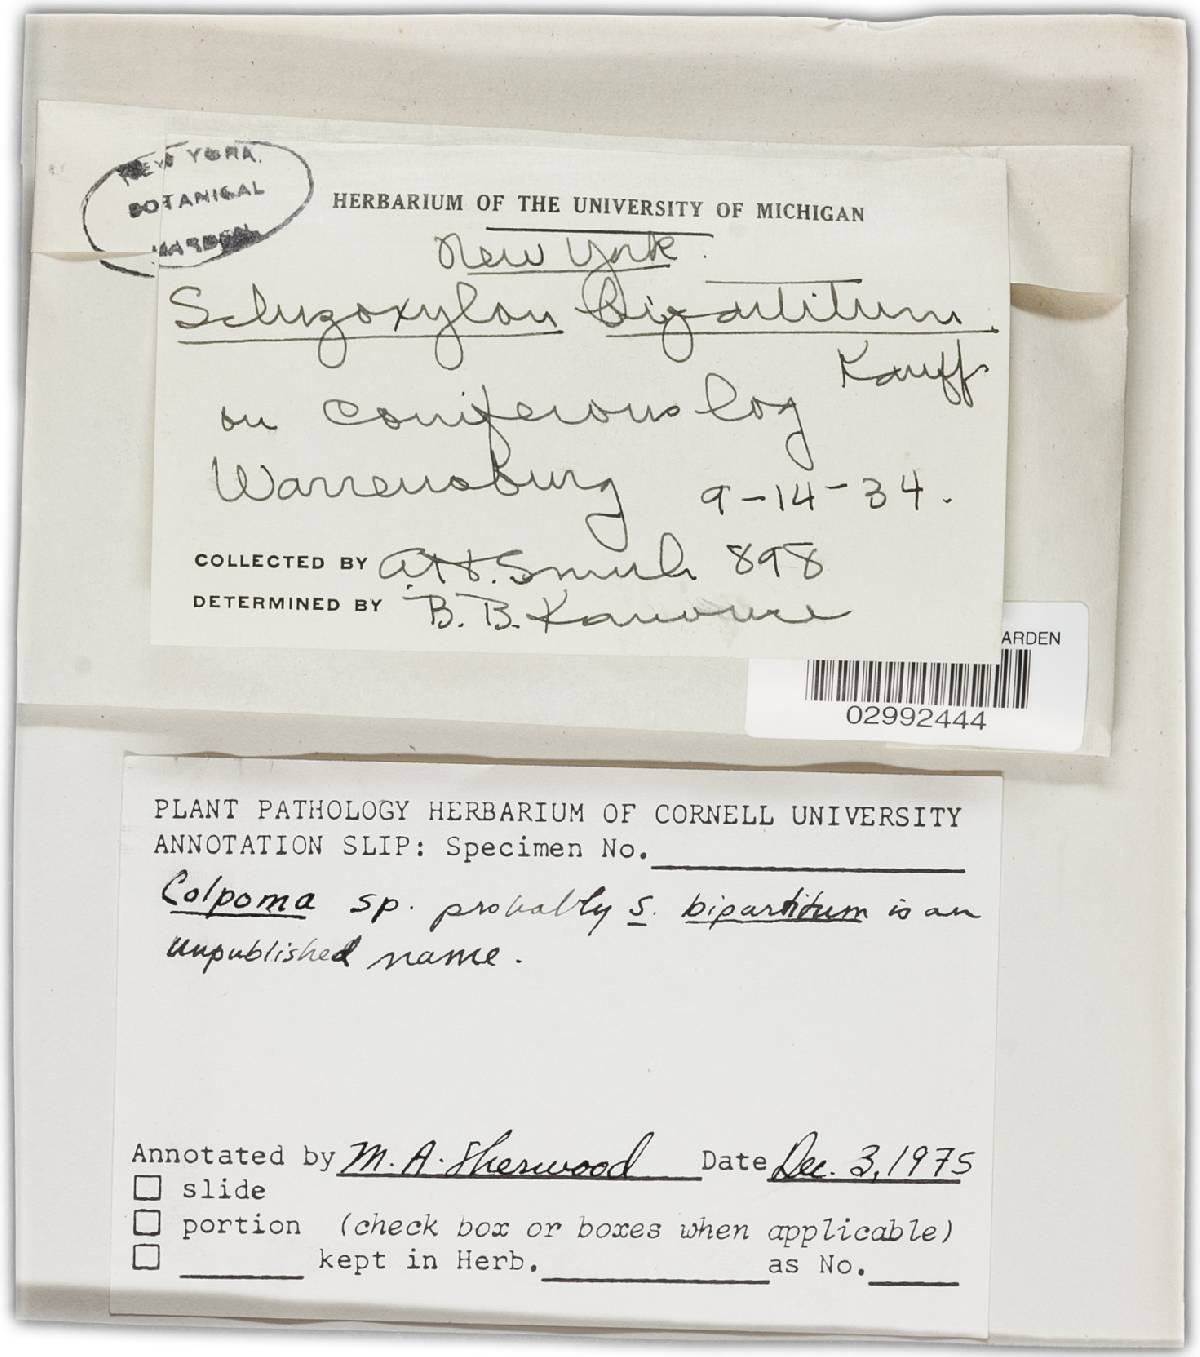 NEW YORK
BOTANICAL
GARDEN
HERBARIUM OF THE UNIVERSITY OF MICHIGAN
New York.
Schizoxylon bipartitum
Kauff
on coniferous log
Warrensburg 9-14-34.
COLLECTED BY A.H. Smith 898
DETERMINED BY B. B. Kanouse
ARDEN
02992444
PLANT PATHOLOGY HERBARIUM OF CORNELL UNIVERSITY
ANNOTATION SLIP: Specimen No.
Colpoma sp. probably S. bipartitum is an
unpublished name.
Annotated by M. A. Sherwood Date Dec. 3, 1975
slide
portion (check box or boxes when applicable)
kept in Herb. as No.